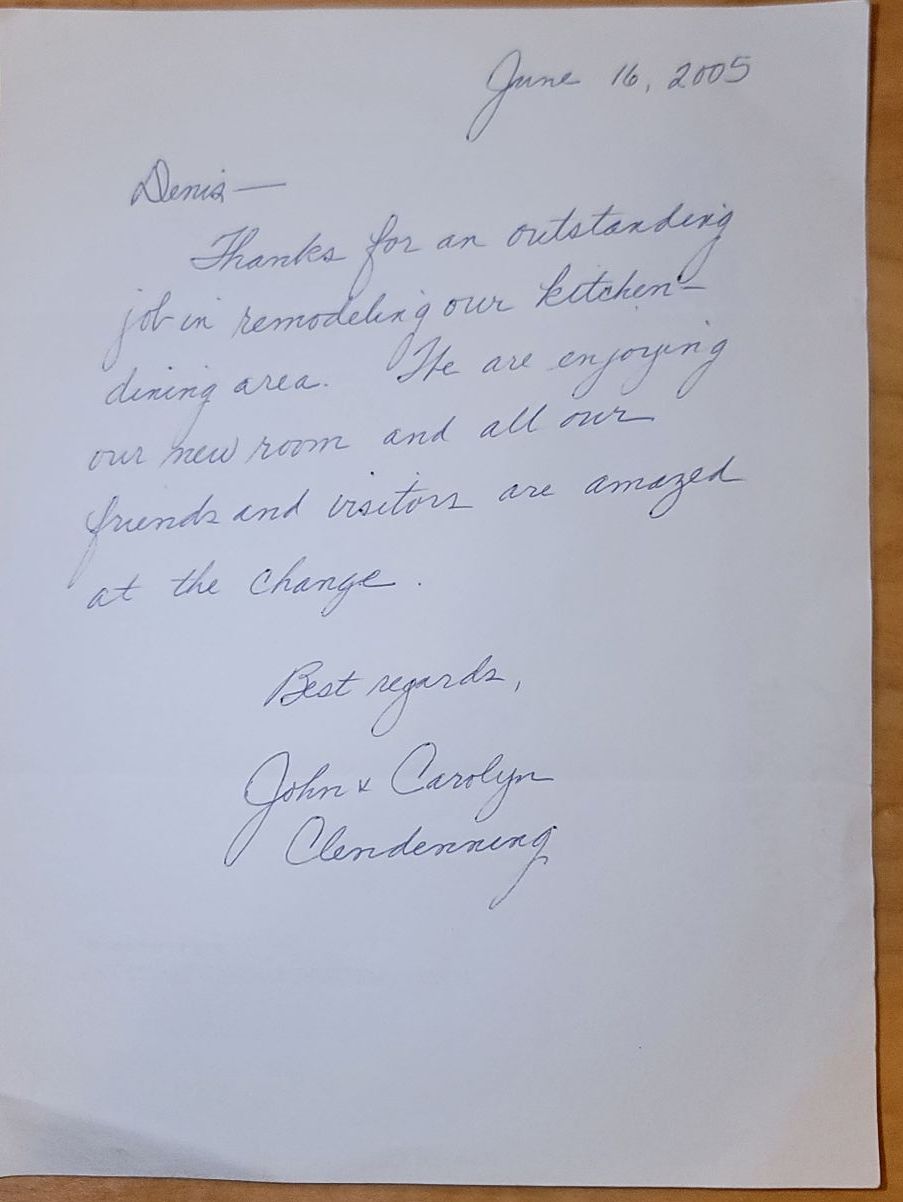 June 16, 2005
Denis—
Thanks for an outstanding
job in remodeling our kitchen-
dining area. We are enjoying
our new room and all our
friends and visitors are amazed
at the change.
Best regards,
John & Carolyn
Clendenning